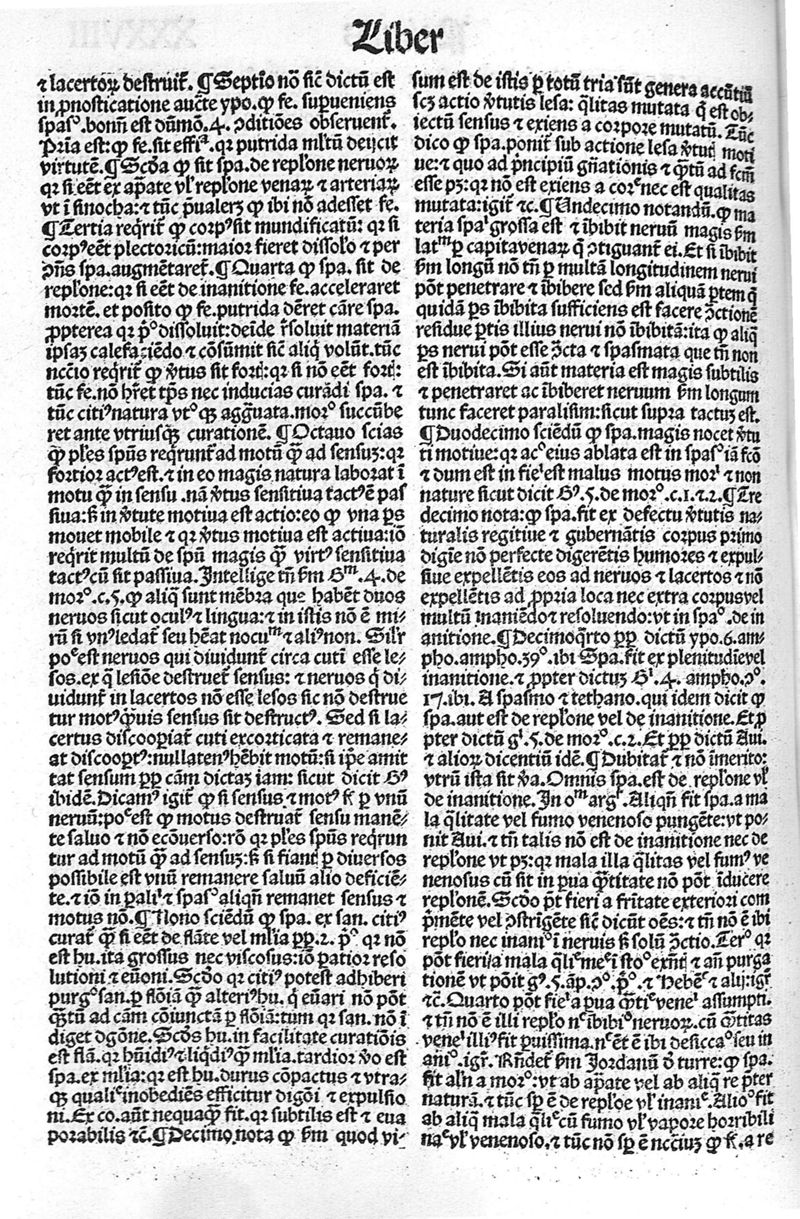 Liber
⁊ lacertoꝝ destruit̃. ¶ Septīo nō sic̄ dictū est
in ꝓnosticatione auct̄e ypo. ꝙ fe. suꝑueniens
spas᷒. bonū est dūmō .4. ꝯditiões obseruent̃.
Pria est: ꝙ fe. sit qꝛ putrida ml̄tū deijcit
virtutē. ¶ Scd̃a ꝙ sit spa. de repl̃one neruoꝝ
qꝛ si eēt ex apāte vl̃ repl̃one venaꝝ ⁊ arteriaꝝ
vt ī sinocha: ⁊ tūc p̄ualerꝫ ꝙ ibi nō adesset fe.
¶ Tertia reqͥrit̃ ꝙ corp᷒ sit mundificatū: qꝛ si
corp᷒ eēt plectoricū: maior fieret dissol̃o ⁊ per
ꝯñs spa. augmētaret̃. ¶ Quarta ꝙ spa. sit de
repl̃one: qꝛ si eēt de inanitione fe. acceleraret
mortē. et posito ꝙ fe. putrida dēret cāre spa.
ꝓpterea qꝛ pͦ dissoluit: deīde r̃soluit materiā
ipsaꝫ calefaciēdo ⁊ cōsūmit sic̄ aliq̄ volūt. tūc
nccīo reqͥrit̃ ꝙ ꝟtus sit fortꝭ: qꝛ si nō eēt fortꝭ:
tūc fe. nō hr̃et tp̄s nec inducias curādi spa. ⁊
tūc citi᷒ natura vtͦ qꝫ agg̃uata. morͦ succūbe
ret ante vtriusqꝫ curationē. ¶ Octauo scias
ꝙ ples sp̄us reqͥrunt̃ ad motū ꝙ̃ ad sensuꝫ: qꝛ
fortior act᷒ est. ⁊ in eo magis natura laborat ī
motu ꝙ̃ in sensu. nã ꝟtus sensitiua tact᷒ ē pas
siua: ß in ꝟtute motiua est actio: eo ꝙ vna ps
mouet mobile ⁊ qꝛ ꝟtus motiua est actiua: iō
reqͥrit multū de sp̄u magis ꝙ̃ virt᷒ sensitiua
tact᷒ cū sit passiua. Intellige tñ ẜm Gᵐ .4. de
morͦ. c.5. ꝙ aliq̄ sunt mēbra que habēt duos
neruos sicut ocul᷒ ⁊ lingua: ⁊ in istis nō ē mi
rū si vn᷒ ledat̃ seu hēat nocuᵐ ⁊ ali᷒ non. Silr̃
poᵉ est neruos qui diuidunt̃ circa cutī esse le-
sos. ex q̄ lesiõe destruet̃ sensus: ⁊ neruos q̄ di-
uidunt̃ in lacertos nō esse lesos sic nō destrue
tur mot᷒ qͣuis sensus sit destruct᷒. Sed si la-
certus discoopiat̃ cuti excorticata ⁊ remane-
at discoopt᷒: nullaten᷒ hēbit motū: si ip̄e amit
tat sensum ꝓp̃ cām dictaꝫ iam: sicut dicit G᷒
ibidē. Dicam᷒ igit̃ ꝙ si sensus ⁊ mot᷒ fit ꝑ vnū
neruū: poᵉ est ꝙ motus destruat̃ sensu manē-
te saluo ⁊ nō ecōuerso: rō qꝛ ples sp̄us reqͥrun
tur ad motū ꝙ̃ ad sensuꝫ: ß si fiant ꝑ diuersos
possibile est vnū remanere saluū alio deficiē-
te. ⁊ iō in parali ⁊ spas᷒ aliqñ remanet sensus ⁊
motus nō. ¶ Nono sciēdū ꝙ spa. ex san. citi᷒
curat̃ ꝙ̃ si eēt de flāte vel ml̃ia ꝓp̃ .2. pͦ qꝛ nō
est hu. ita grossus nec viscosus: iō patior reso
lutioni ⁊ euōni. Scd̃o qꝛ citi᷒ potest adhiberi
purgͦ san. ꝑ flõiā ꝙ̃ alteri᷒ hu. q̄ euāri nō pōt
ꝙ̃tū ad cam cōiunctā ꝑ flõiā: tum qꝛ san. nō ī
diget dgōne. Scd̃s hu. in facilitate curatiōis
est flã. qꝛ hūid᷒ ⁊ liqͥd᷒ ꝙ̃ ml̃ia. tardior ꝟo est
spa. ex ml̃ia: qꝛ est hu. durus cōpactus ⁊ vtra-
qꝫ qualiᵉ inobediēs efficitur digōi ⁊ expulsio
ni. Ex co. aūt nequaꝙ̃ fit. qꝛ subtilis est ⁊ eua
porabilis ⁊c̄. ¶ Decimo nota ꝙ ẜm quod vi-
sum est de istis ꝑ totū tria sūt genera accn̄tiū
scꝫ actio ꝟtutis lesa: q̄litas mutata q̄ est ob-
iectū sensus ⁊ exiens a corpore mutatū. Tūc
dico ꝙ spa. ponit̃ sub actione lesa ꝟtutꝭ moti
ue: ⁊ quo ad p̄ncipiū gñationis ⁊ ꝙ̃tū ad fcm̄
esse pꝫ: qꝛ nō est exiens a corᵉ nec est qualitas
mutata: igit̃ ⁊c̄. ¶ Undecimo notandū. ꝙ ma
teria spaˡ grossa est ⁊ ībibit neruū magis ẜm
latᵐ ꝑ capita venaꝝ q̄ ꝯtiguant̃ ei. Et si ībibit
ẜm longū nō tñ ꝑ multā longitudinem nerui
pōt penetrare ⁊ ībibere sed ẜm aliquā ptem q̄
quidā ps ībibita sufficiens est facere ꝯctionē
residue ptis illius nerui nō ībibitā: ita ꝙ aliq̄
ps nerui pōt esse ꝯcta ⁊ spasmata que tñ non
est ībibita. Si aūt materia est magis subtilis
⁊ penetraret ac ībiberet neruum ẜm longum
tunc faceret paralism: sicut supra tactuꝫ est.
¶ Duodecimo sciēdū ꝙ spa. magis nocet ꝟtu
ti motiue: qꝛ ac᷒ eius ablata est in spas᷒ iā fcō
⁊ dum est in fieri est malus motus morˡ ⁊ non
nature sicut dicit G᷒ .5. de morͦ. c.1. ⁊.2. ¶ Tre
decimo nota: ꝙ spa. fit ex defectu ꝟtutis na-
turalis regitiue ⁊ gubernātis corpus primo
digīe nō perfecte digerētis humores ⁊ expul-
siue expellētis eos ad neruos ⁊ lacertos ⁊ nō
expellētis ad ꝓpria loca nec extra corpus vel
multū inaniēdo ⁊ resoluendo: vt in spas᷒. de in
anitione. ¶ Decimoqͣrto ꝓp̃ dictū ypo. 6. am-
pho. ampho. 39ͦ. ibi Spa. fit ex plenitudīe vel
inanitione. ⁊ ꝓpter dictuꝫ Gˡ .4. ampho. ꝯͦ.
17. ibi. A spasmo ⁊ tethano. qui idem dicit ꝙ
spa. aut est de repl̃one vel de inanitione. Et ꝓ
pter dictū gˡ .5. de morͦ. c.2. Et ꝓp̃ dictū Aui.
⁊ alioꝝ dicentiū idē. ¶ Dubitat̃ ⁊ nō īmerito:
vtrū ista sit ꝟa. Omnis spa. est de repl̃one vl̃
de inanitione. In oᵐ argr̃. Aliqñ fit spa. a ma
la q̄litate vel fumo venenoso pungēte: vt po-
nit Aui. ⁊ tñ talis nō est de inanitione nec de
repl̃one vt pꝫ: qꝛ mala illa q̄litas vel fum᷒ ve
nenosus cū sit in pua ꝙ̃titate nō pōt īducere
repl̃onē. Scd̃o pōt fieri a frītate exteriori com
p̄mēte vel ꝯstrīgēte sic̄ dicūt oēs: ⁊ tñ nō ē ibi
repl̃o nec inaniͦ ī neruis ß solū ꝯctio. Terͦ qꝛ
pōt fieri a mala q̄liᵉ meⁱ ī stoͦ exñti ⁊ añ purga
tionē vt pōit g᷒ .5. āp. ꝯͦ. pͦ. ⁊ Hebēᵉ ⁊ alij: igr̃
⁊c̄. Quarto pōt fieri a pua ꝙ̃tiᵉ veneⁱ assumpti.
⁊ tñ nō ē illi repl̃o nᵉ ībibiͦ neruoꝝ. cū ꝙ̃titas
veneⁱ illi᷒ fit puissima. nᵉ ēt ē ibi desiccaͦ seu in
aniͦ. igr̃. Rñdet̃ ẜm Jordanū ð turre: ꝙ spa.
fit alñ a morͦ: vt ab apāte vel ab aliq̄ re p̄ter
naturā. ⁊ tūc sp̄ ē de repl̃oe vl̃ inaniᵉ. Alioͦ fit
ab aliq̄ mala q̄liᵉ cū fumo vl̃ vapore horribili
naᵉ vl̃ venenoso. ⁊ tūc nō sp̄ ē nccīuꝫ ꝙ fit. a re